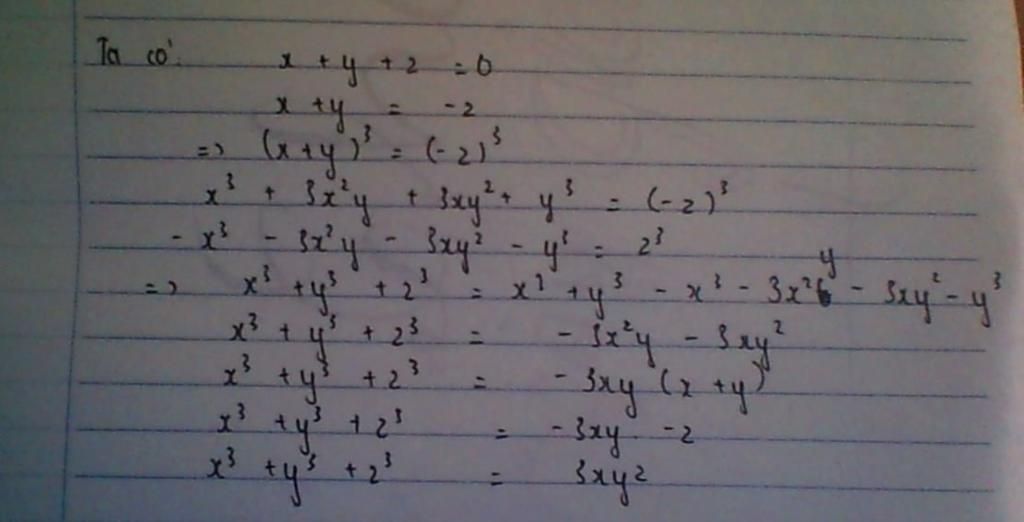 Ta có: x + y + z = 0
x + y = -z
=> (x + y)³ = (-z)³
x³ + 3x²y + 3xy² + y³ = (-z)³
- x³ - 3x²y - 3xy² - y³ = z³
=> x³ + y³ + z³ = x³ + y³ - x³ - 3x²y - 3xy² - y³
x³ + y³ + z³ = - 3x²y - 3xy²
x³ + y³ + z³ = - 3xy (x + y)
x³ + y³ + z³ = - 3xy . -z
x³ + y³ + z³ = 3xyz